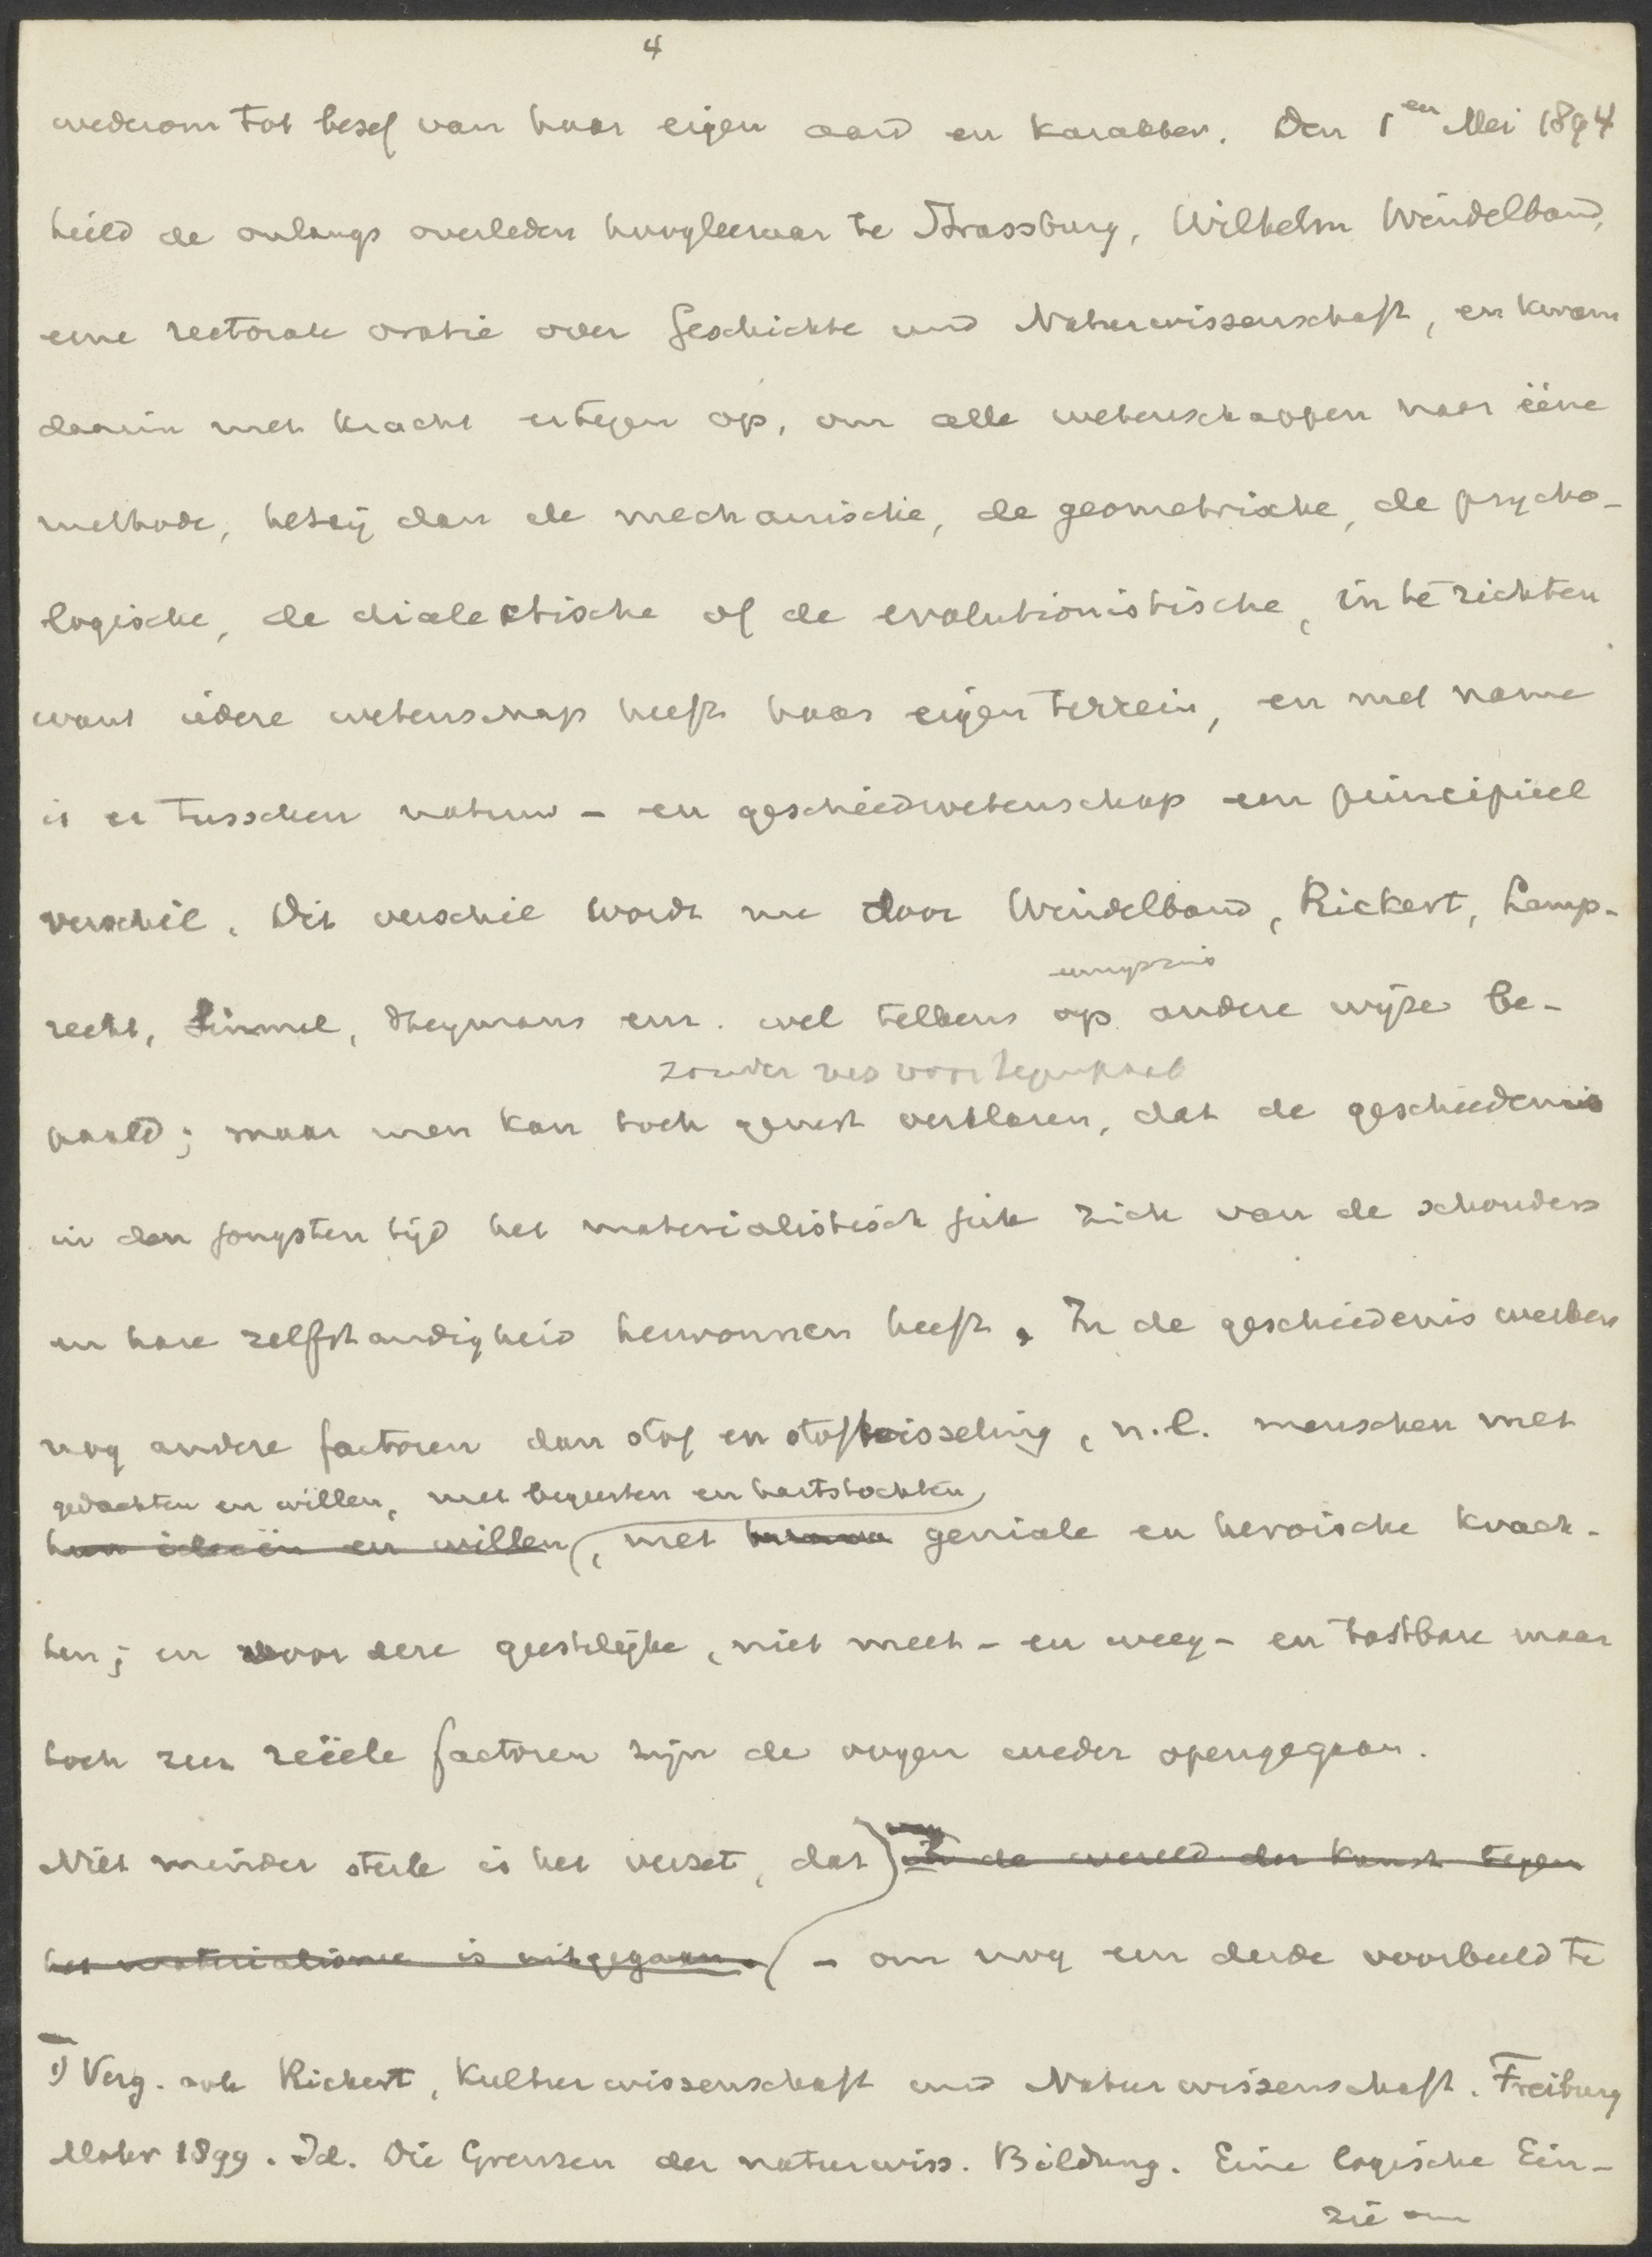 4
wederom tot besef van haar eigen aard en karakter. Den 1en Mei 1894
hield de onlangs overleden hoogleeraar te Strassburg, Wilhelm Windelband,
eene rectorale oratie over Geschichte und Naturwissenschaft, en kwam
daarin met kracht ertegen op, om alle wetenschappen naar ééne
methode, hetzij dan de mechanische, de geometrische, de psycho-
logische, de dialectische of de evolutionistische, in te richten
want iedere wetenschap heeft haar eigen terrein, en met name
is er tusschen natuur- en geschiedwetenschap een principieel
verschil. Dit verschil wordt nu door Windelband, Rickert, Lamp-
enigszins
recht, Simmel, Heymans enz. wel telkens op andere wijze be-
zonder vrees voor tegenspraak
paald; maar men kan toch gerust verklaren, dat de geschiedenis
in den jongsten tijd het materialistisch juk zich van de schouders
en hare zelfstandigheid herwonnen heeft. In de geschiedenis werken
nog andere factoren dan stof en stofwisseling, n.l. menschen met
gedachten en willen, met begeerten en hartstochten
hun ideeën en willen, met geniale en heroische krach-
ten; en voor deze geestelijke, niet meet- en weeg- en tastbare maar
toch zeer reëele factoren zijn de oogen weder opengegaan.
Niet minder sterk is het verzet, dat in de wereld der kunst tegen
het materialisme is uitgegaan. - om nog een derde voorbeeld te
1) Verg. ook Rickert, Kulturwissenschaft und Naturwissenschaft. Freiburg
Mohr 1899. Id. Die Grenzen der naturwiss. Bildung. Eine logische Ein-
zie om